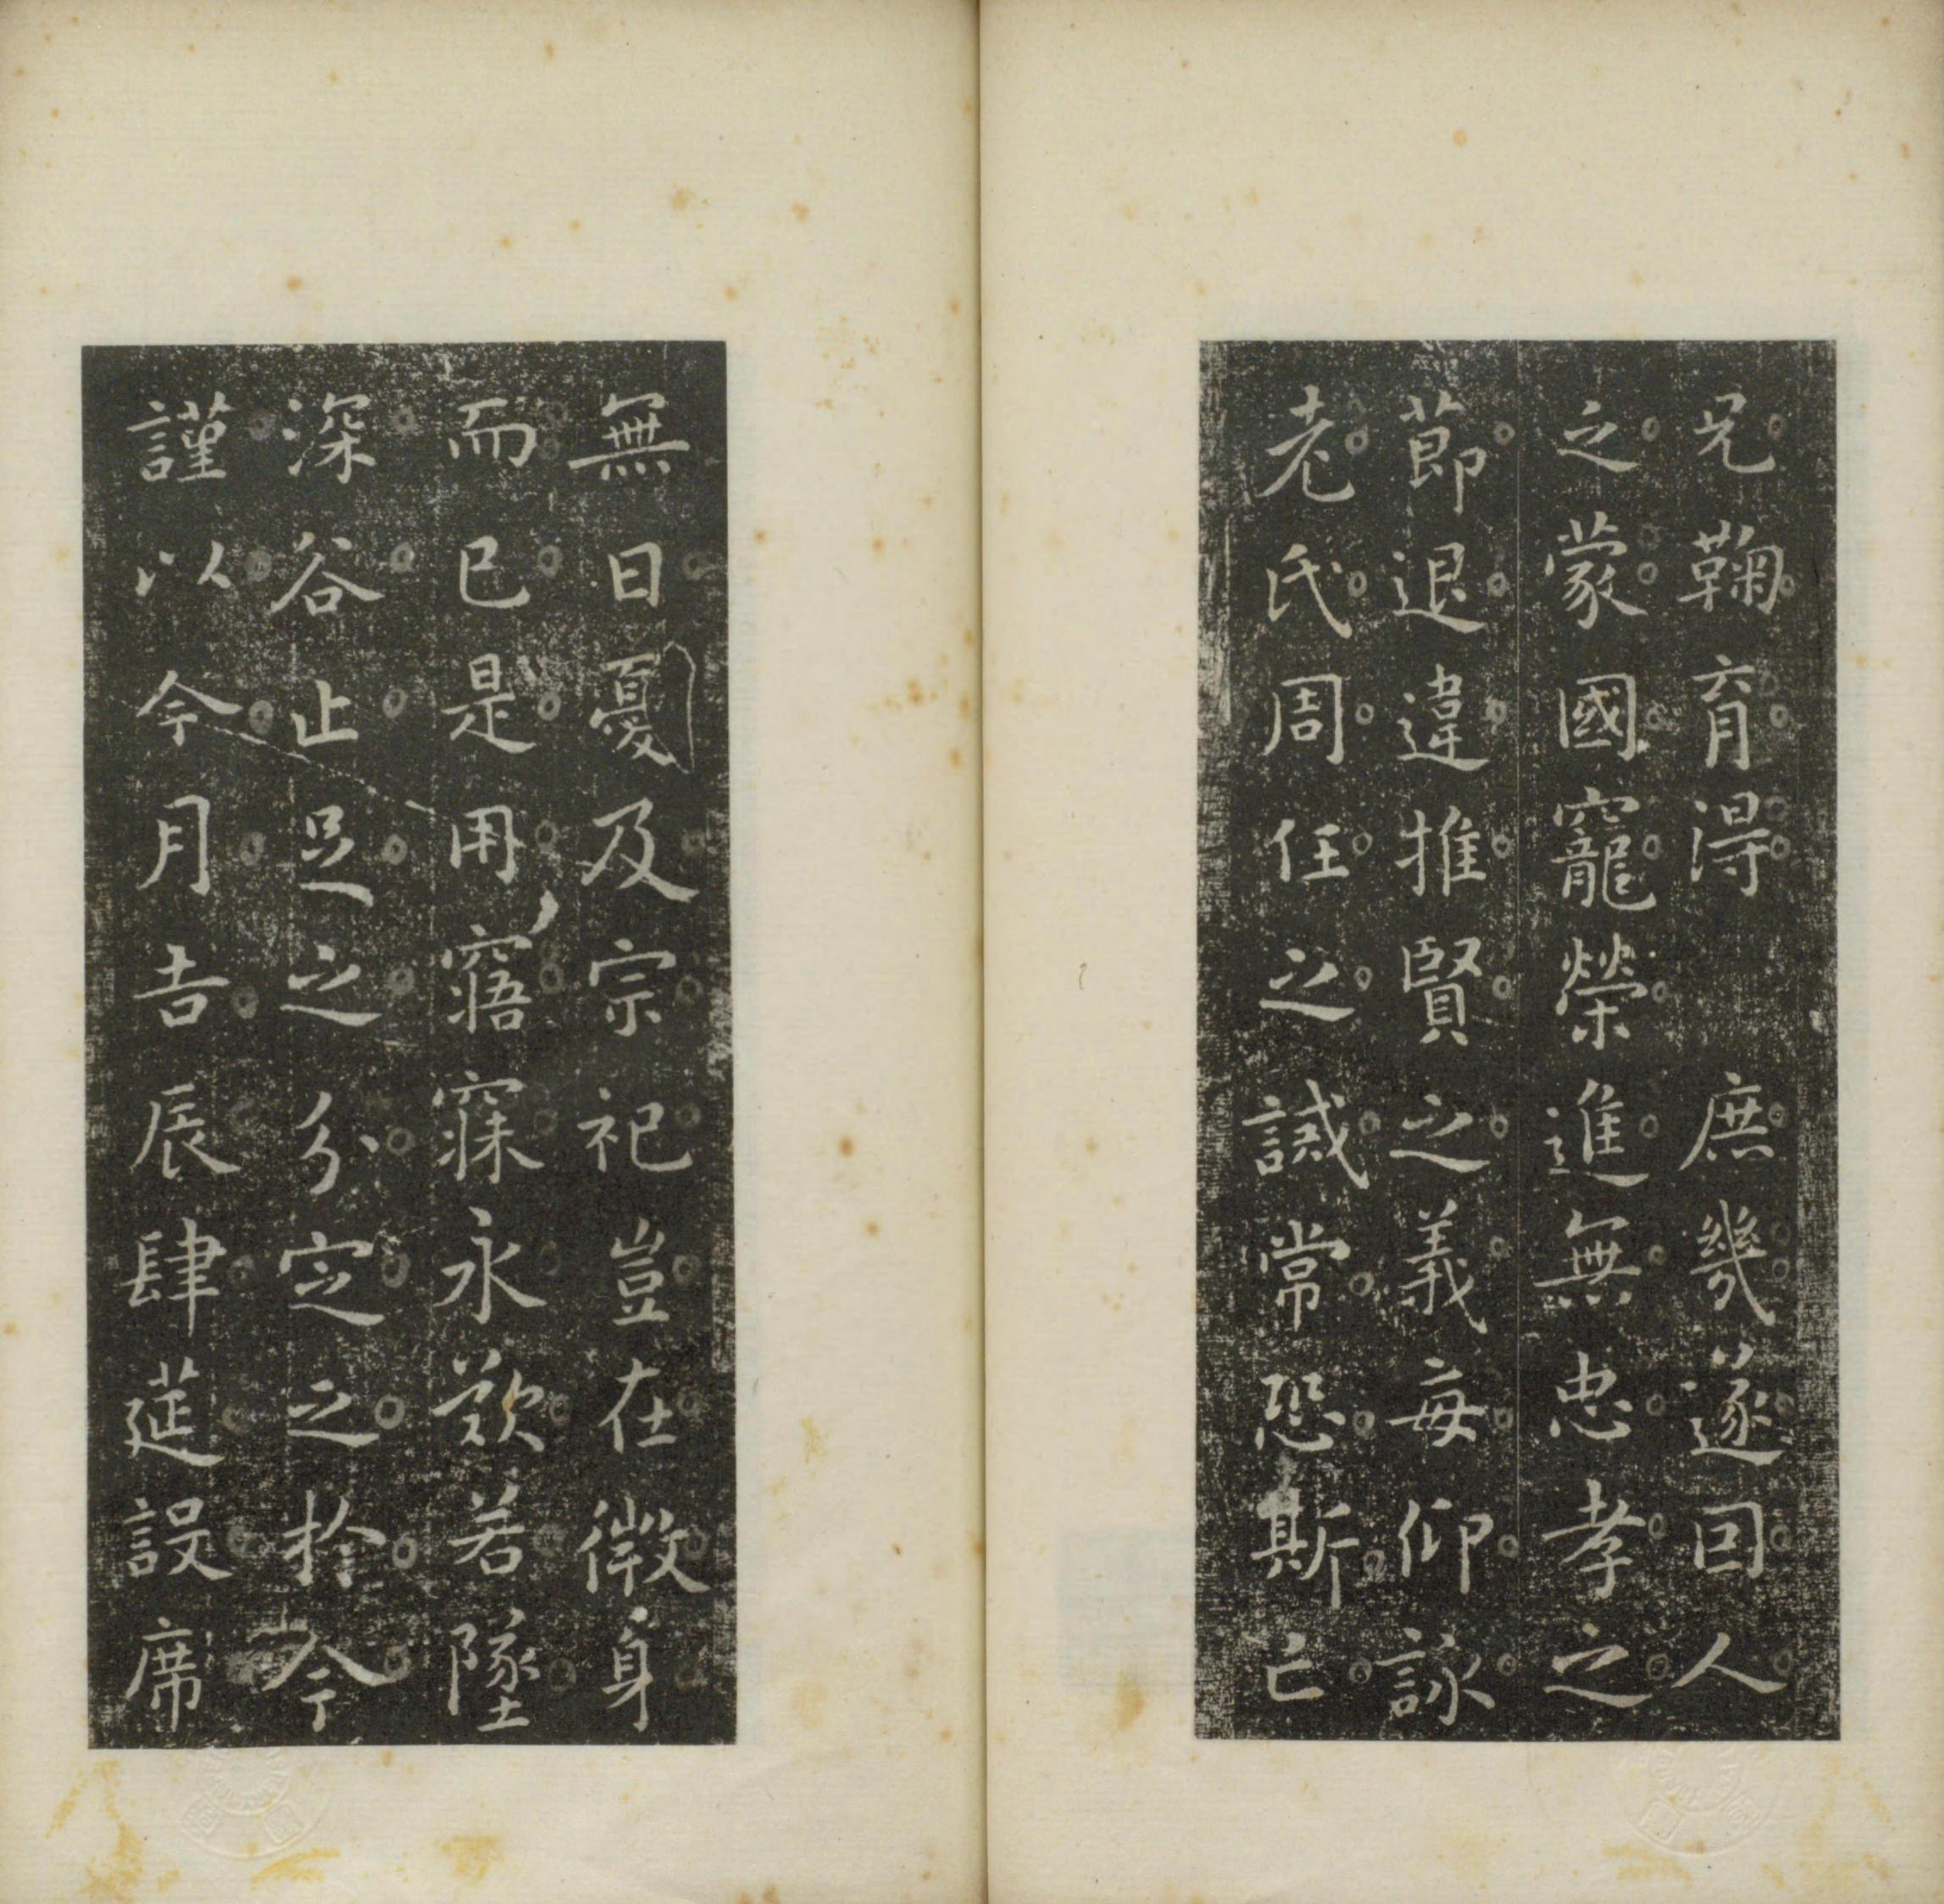 兄鞠育得庶幾遂因人
之蒙國寵榮進無忠孝之
節退違推賢之義每仰詠
老氏周任之誡常恐斯亡
無日憂及宗祀豈在微身
而已是用寤寐永歎若墜
深谷止足之分定之於今
謹以今月吉辰肆莚設席